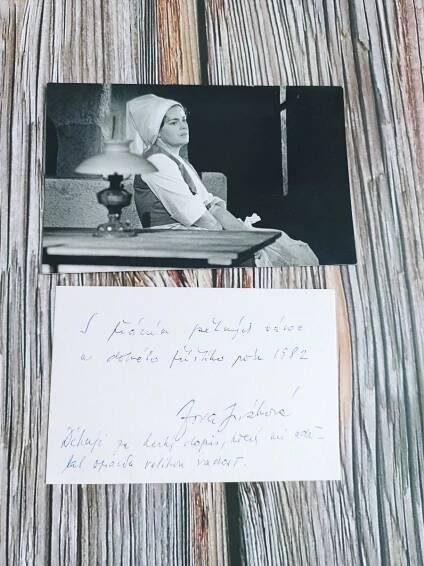 S přáním pěkných vánoc
a dobrého příštího roku 1982
Jana Jirásková!
Děkuji za hezký dopis, který mi udě-
lal opravdu velikou radost.